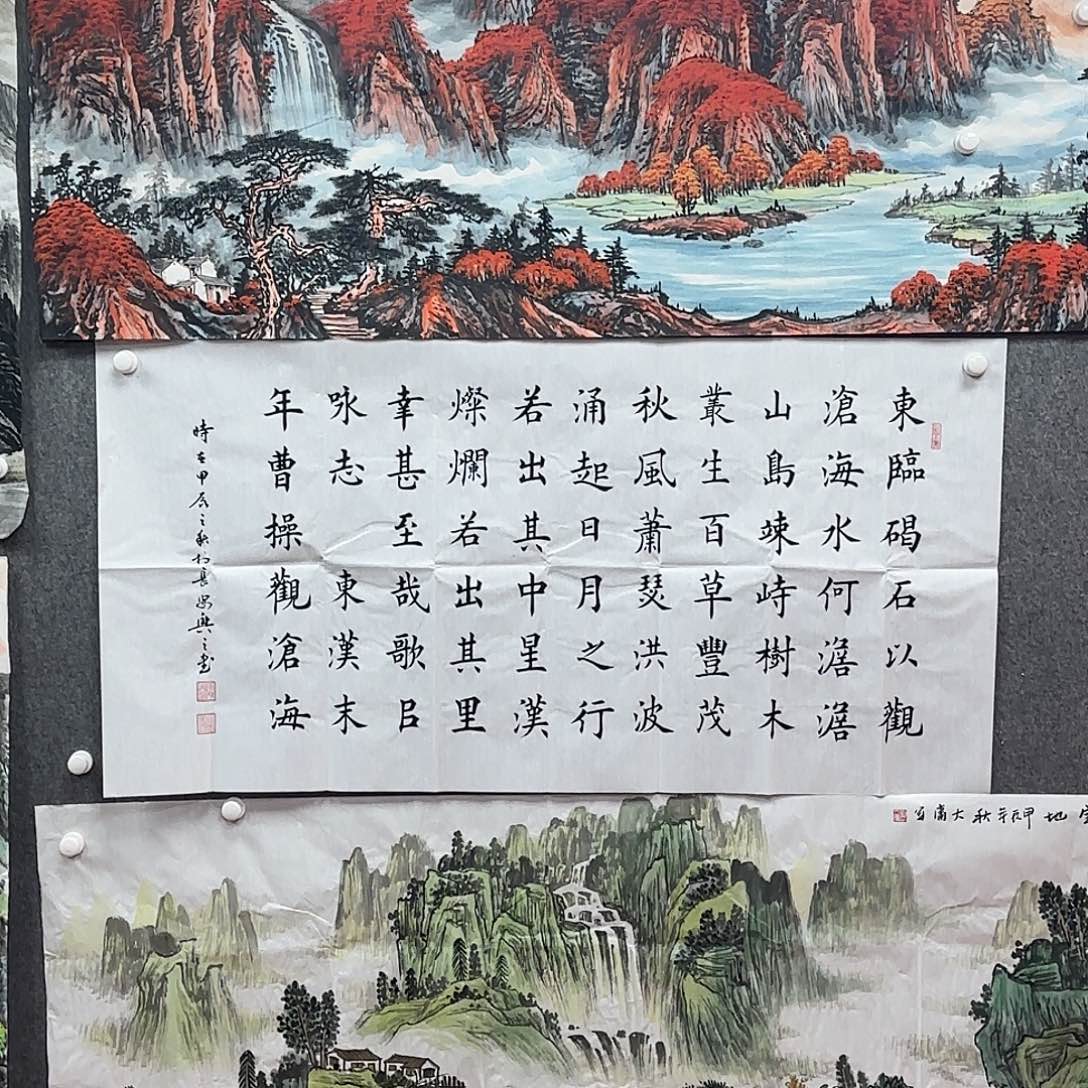 東臨碣石以觀
滄海水何澹澹
山島竦峙樹木
叢生百草豐茂
秋風蕭瑟洪波
涌起日月之行
若出其中星漢
燦爛若出其里
幸甚至哉歌㠯
咏志 東漢末
年曹操觀滄海
時在甲辰之秋於長安興之書
地 甲辰年秋大